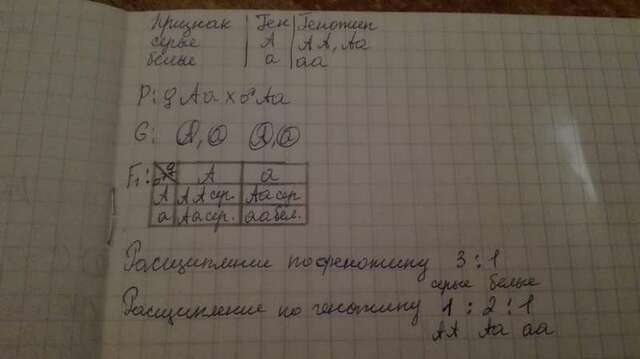 Признак Ген Генотип
серые А АА, Аа
белые а аа
P: ♀ Аа х ♂ Аа
G: А, а А, а
F₁: ♀ ♂ А а
А АА сер. Аа сер
а Аа сер. аа бел.
Расщипление по фенотипу 3 : 1
серые белые
Расщипление по генотипу 1 : 2 : 1
АА Аа аа